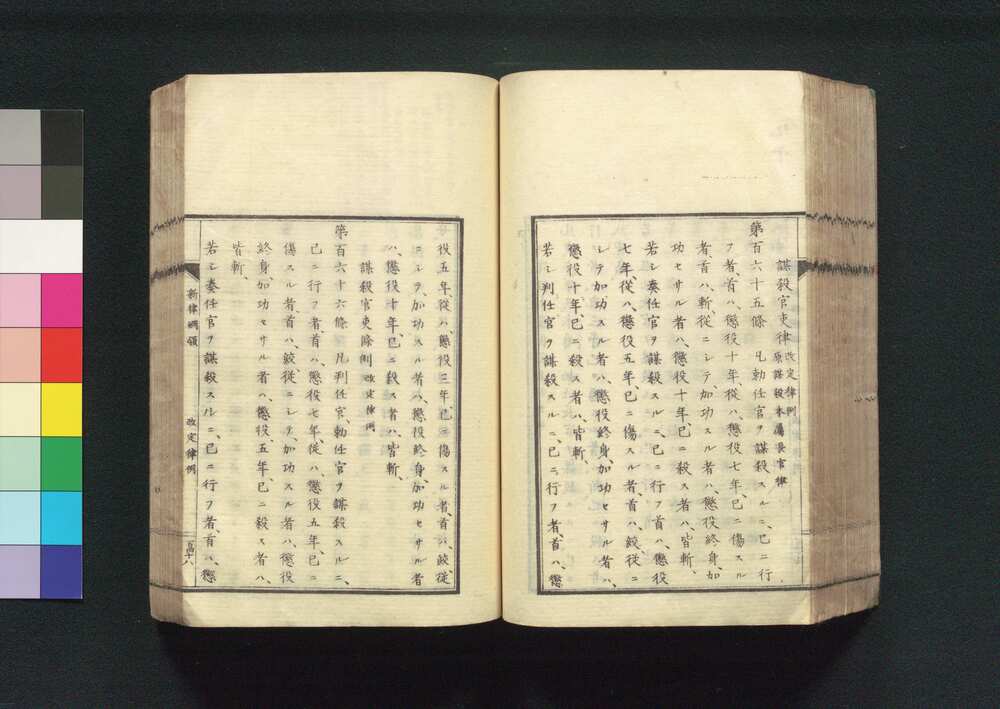 謀殺官吏律 改定律例
原謀殺本属長官律
第百六十五條 凡勅任官ヲ謀殺スルニ、已ニ行
フ者、首ハ、懲役十年、從ハ、懲役七年、已ニ傷スル
者、首ハ、斬、從ニシテ、加功スル者ハ、懲役終身、加
功セサル者ハ、懲役十年、已ニ殺ス者ハ、皆斬、
若シ奏任官ヲ謀殺スルニ、已ニ行フ者、首ハ、懲役
七年、從ハ、懲役五年、已ニ傷スル者、首ハ、絞、從ニ
シテ加功スル者ハ、懲役終身、加功セサル者ハ、
懲役十年、已ニ殺ス者ハ、皆斬、
若シ判任官ヲ謀殺スルニ、已ニ行フ者、首ハ、懲
役五年、從ハ、懲役三年、已ニ傷スル者、首ハ、絞、從
ニシテ、加功スル者ハ、懲役終身、加功セサル者
ハ、懲役十年、已ニ殺ス者ハ、皆斬、
謀殺官吏條例 改定律例
第百六十六條 凡判任官、勅任官ヲ謀殺スルニ、
已ニ行フ者、首ハ、懲役七年、從ハ、懲役五年、已ニ
傷スル者、首ハ、絞、從ニシテ、加功スル者ハ、懲役
終身、加功セサル者ハ、懲役五年、已ニ殺ス者ハ、
皆斬、
若シ奏任官ヲ謀殺スルニ、已ニ行フ者、首ハ、懲
新律綱領 改定律例 百四十八